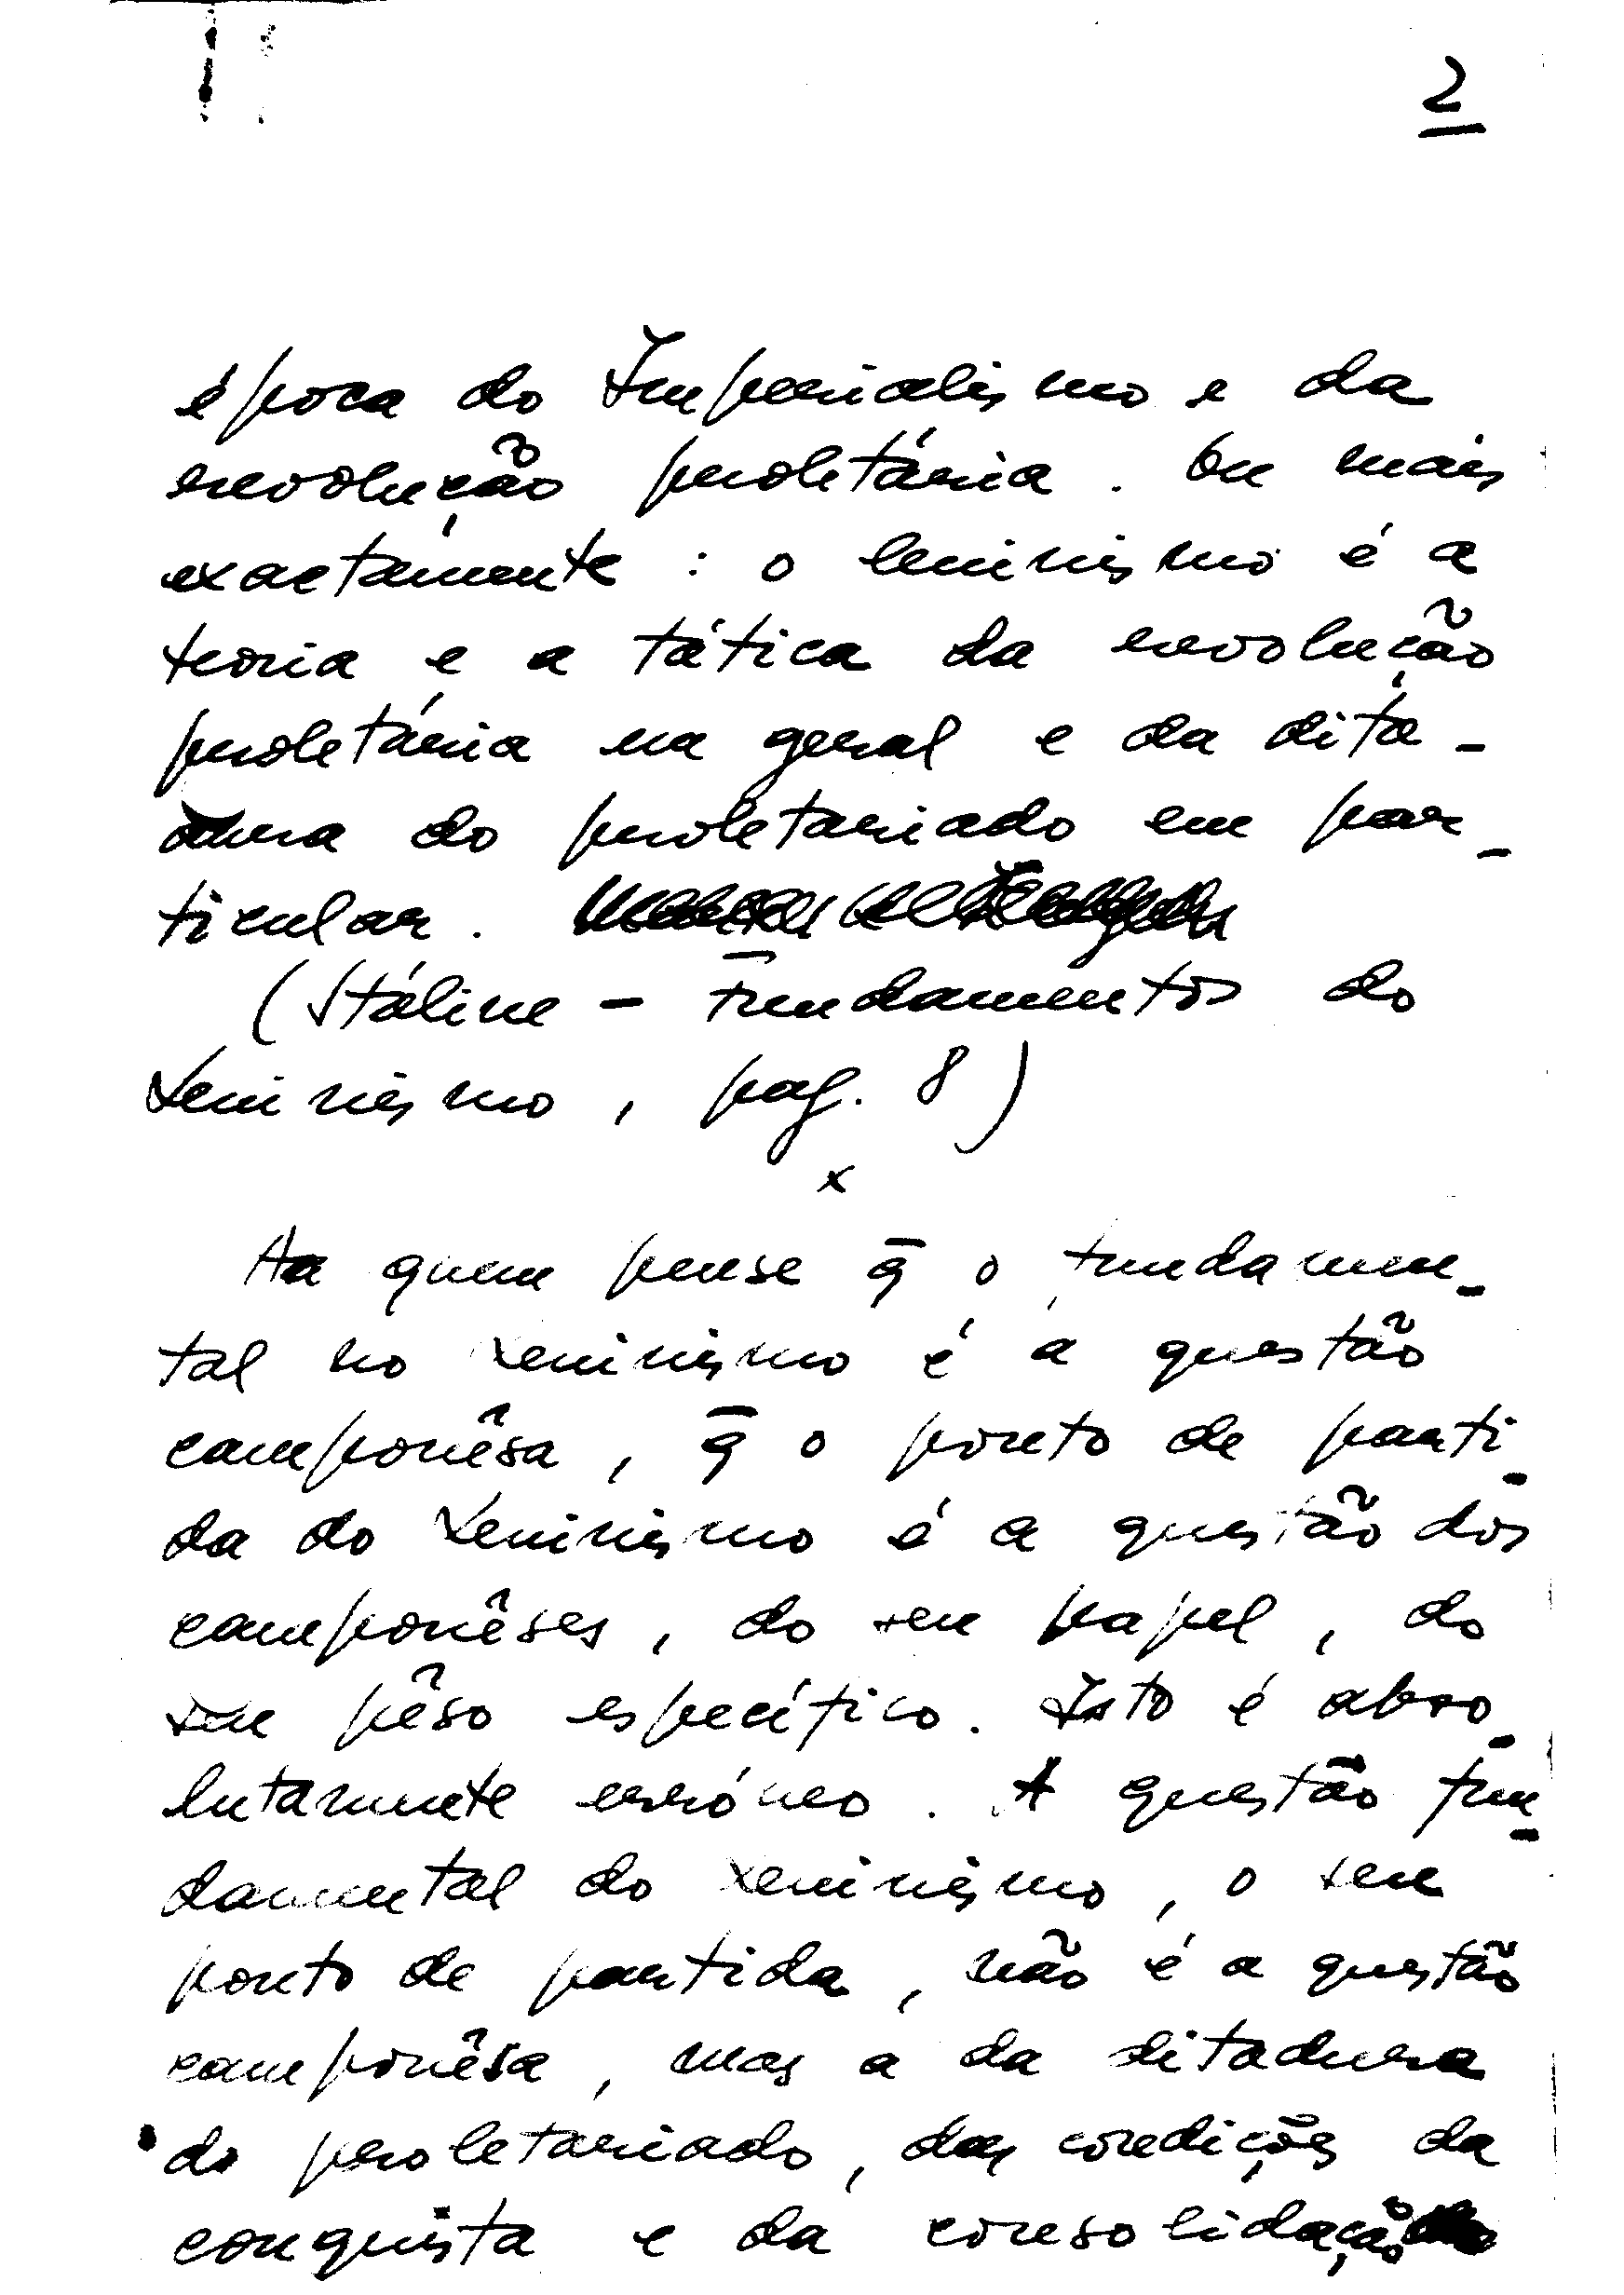 2
época do Imperialismo e da
revolução proletária. Ou mais
exactamente: o leninismo é a
teoria e a tática da revolução
proletária na geral e da dita-
dura do proletariado em par-
ticular.
(Stáline - Fundamentos do
Leninismo, pag. 8)
x
Ha quem pense q̄ o fundamen-
tal no Leninismo é a questão
camponêsa, q̄ o ponto de parti-
da do Leninismo é a questão dos
camponêses, do seu papel, do
seu pêso específico. Isto é abso-
lutamente erróneo. A questão fun-
damental do Leninismo, o seu
ponto de partida, não é a questão
camponêsa, mas a da ditadura
do proletariado, das condições da
conquista e da consolidação